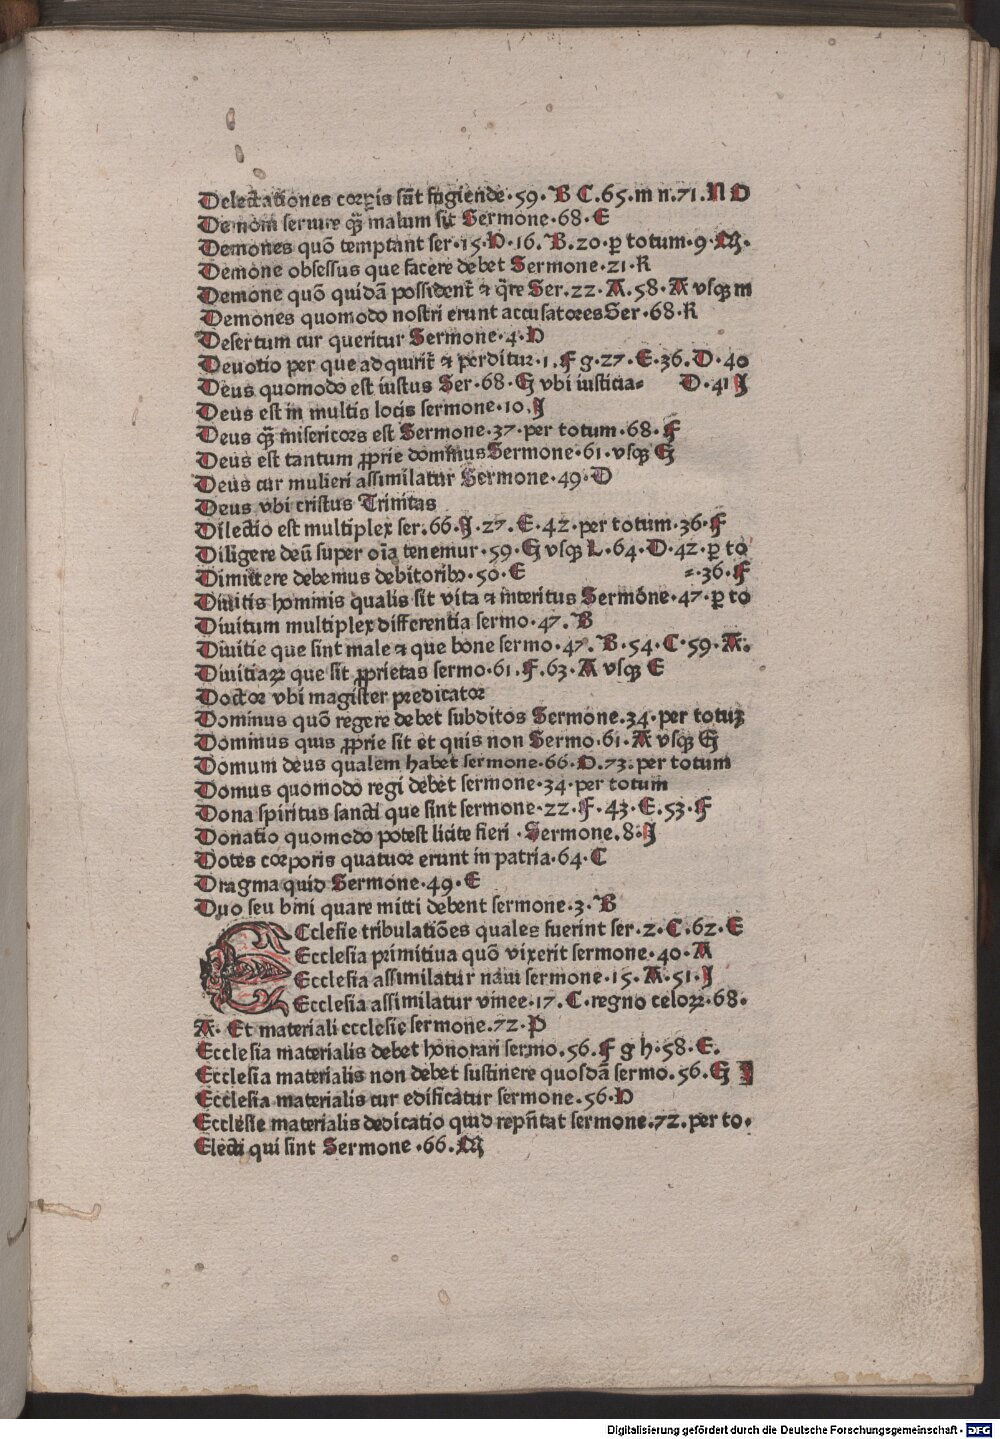 Delectationes corꝑis sūt fugiende·59·B C.65.m n.71.N O
Demoni seruire qꝫ̄ malum sit Sermone·68·E
Demones quō temptant ser·15·D·16.B.20·ꝑ totum·9·M·
Demone obsessus que facere debet Sermone·21·R
Demone quō quidā possident̄ ⁊ q̄re Ser.22·A.58·A vsqꝫ m
Demones quomodo nostri erunt accusatores Ser·68·R
Desertum cur queritur Sermone·4·D
Deuotio per que adquirit̄ ⁊ perditur·1.F g·27·E·36.D·40
Deus quomodo est iustus Ser·68·G vbi iusticia⸗ D·41 J
Deus est in multis locis sermone·10.J
Deus qꝫ̄ misericors est Sermone·37·per totum·68·F
Deus est tantum ꝓprie dominus Sermone·61·vsqꝫ G
Deus cur mulieri assimilatur Sermone·49·D
Deus vbi cristus Trinitas
Dilectio est multiplex ser.66.J·27.E·42·per totum·36·F
Diligere deū super oīa tenemur·59·G vsqꝫ L·64·D·42·ꝑ to
Dimittere debemus debitoribꝫ·50·E ⸗·36·F
Diuitis hominis qualis sit vita ⁊ interitus Sermone·47·ꝑ to
Diuitum multiplex differentia sermo·47.B
Diuitie que sint male ⁊ que bone sermo·47.B·54·C·59·A:
Diuitiaꝝ que sit ꝓprietas sermo·61.F.63·A vsqꝫ E
Doctor vbi magister predicator
Dominus quō regere debet subditos Sermone.34·per totuꝫ
Dominus quis ꝓprie sit et quis non Sermo·61·A vsqꝫ G
Domum deus qualem habet sermone·66·O.73·per totum
Domus quomodo regi debet sermone·34·per totum
Dona spiritus sancti que sint sermone·22·F·43·E.53·F
Donatio quomodo potest licite fieri·Sermone.8·J
Dotes corporis quatuor erunt in patria·64·C
Dragma quid Sermone·49·E
Duo seu bini quare mitti debent sermone·3·B
Ecclesie tribulatiōes quales fuerint ser·2·C.62·E
Ecclesia primitiua quō vixerit sermone·40·A
Ecclesia assimilatur naui sermone·15·A·51·J
Ecclesia assimilatur vinee·17·C·regno celoꝝ·68·
A· Et materiali ecclesie sermone.72·P
Ecclesia materialis debet honorari sermo.56.F g h·58·E.
Ecclesia materialis non debet sustinere quosdā sermo.56.G J
Ecclesia materialis cur edificatur sermone.56·D
Ecclesie materialis dedicatio quid rep̄ntat sermone.72.per to·
Electi qui sint Sermone·66.M
Digitalisierung gefördert durch die Deutsche Forschungsgemeinschaft - DFG